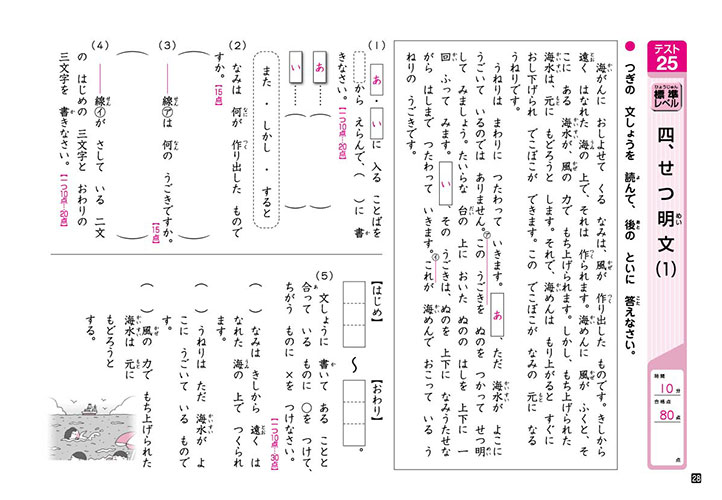 テスト
25
ひょうじゅん
標準
レベル
四、せつ明文(1)
めい
時間
10分
合格点
80点
点
● つぎの 文しょうを 読んで、後の といに 答えなさい。
海がんに おしよせて くる なみは、風が 作り出した ものです。きしから
遠く はなれた 海の 上で、それは 作られます。海めんに 風が ふくと、そ
こに ある 海水が、風の 力で もち上げられます。しかし、もち上げられた
海水は、元に もどろうと します。それで、海めんは もり上がると すぐに
おし下げられ でこぼこが できます。この でこぼこが なみの 元に なる
うねりです。
うねりは まわりに つたわって いきます。 あ 、ただ 海水が よこに
うごいて いるのでは ありません。㋐この うごきを ぬのを つかって せつ明
して みましょう。たいらな 台の 上に おいた ぬのの はしを 上下に 一
回 ふって みます。 い 、その うごきは、ぬのを 上下に なみうたせな
がら はしまで つたわって いきます。㋑これが 海めんで おこって いる う
ねりの うごきです。
(1) あ・い に 入る ことばを
から えらんで、( )に 書
きなさい。【一つ10点―20点】
あ……( )
い……( )
また ・ しかし ・ すると
(2) なみは 何が 作り出した もので
すか。【15点】
( )
(3) ――線㋐は 何の うごきですか。
【15点】
( )
(4) ――線㋑が さして いる 二文
の はじめの 三文字と おわりの
三文字を 書きなさい。【一つ10点―20点】
【はじめ】 〜 【おわり】 。
(5) 文しょうに 書いて ある ことと
合って いる ものに ○を つけて、
ちがう ものに ×を つけなさい。
【一つ10点―30点】
( ) なみは きしから 遠く は
なれた 海の 上で つくられ
ます。
( ) うねりは ただ 海水が よ
こに うごいて いる もので
す。
( ) 風の 力で もち上げられた
海水は 元に もどろうと
する。
28